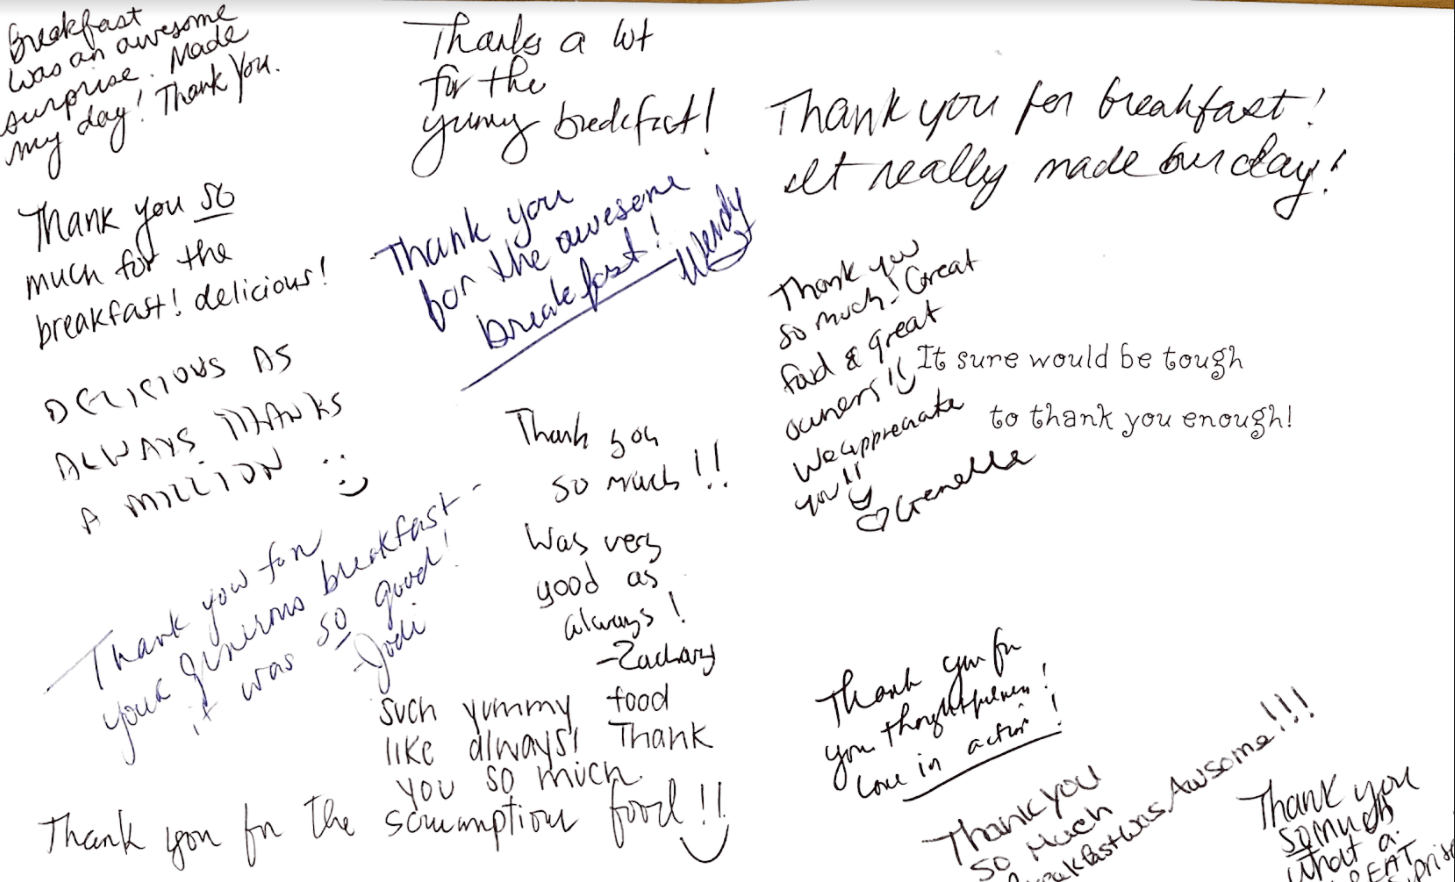 Breakfast
was an awesome
surprise. Made
my day! Thank you.
Thanks a lot
for the
yummy breakfast!
Thank you for breakfast!
It really made our day!
Thank you so
much for the
breakfast! delicious!
Thank you
for the awesome
breakfast!
Wendy
Thank you
so much! Great
food & great
owners!!
We appreciate
you!!
Genella
It sure would be tough
to thank you enough!
DELICIOUS AS
ALWAYS THANKS
A MILLION
Thank you
so much!!
Was very
good as
always!
-Zachary
Thank you for
your generous breakfast-
it was so good!
-Jodi
Such yummy food
like always! Thank
you so much.
Thank you for the scrumptious food!!
Thank you for
you thoughtfulness!
Love in action!
Thank you
so Much
Breakfast was Awsome!!!
Thank you
so much
what a